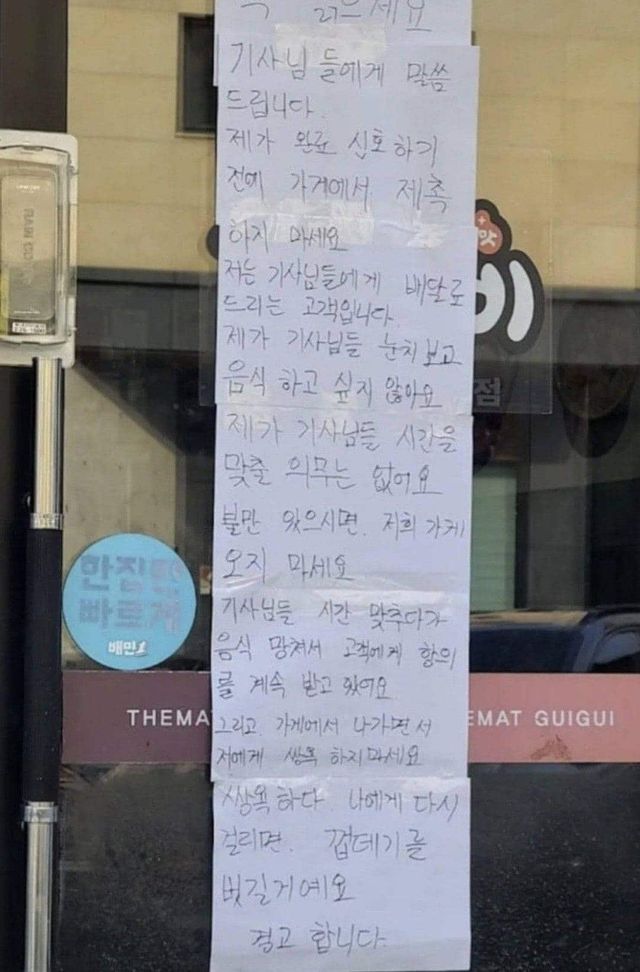 읽으세요
기사님들에게 말씀
드립니다.
제가 완료 신호하기
전에 가게에서 제촉
하지 마세요
저는 기사님들에게 배달료
드리는 고객입니다.
제가 기사님들 눈치보고
음식 하고 싶지 않아요
제가 기사님들 시간을
맞출 의무는 없어요
불만 있으시면. 저희 가게
오지 마세요
기사님들 시간 맞추다가
음식 망쳐서 고객에게 항의
를 계속 받고 있어요
그리고 가게에서 나가면서
저에게 쌍욕 하지마세요
쌍욕하다 나에게 다시
걸리면. 껍데기를
벗길거예요
경고 합니다
맛
비
점
한집만
빠르게
배민1
THEMA
EMAT GUIGUI